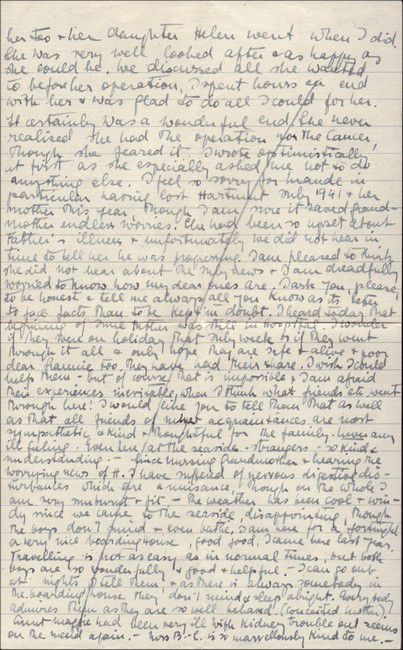 her too & her daughter Helen went when I did.
She was very well looked after & as happy as
she could be. We discussed all she wanted
to before her operation, I spent hours on end
with her & was glad to do all I could for her.
It certainly was a wonderful end, she never
realised she had the operation for the Cancer,
though she feared it. I wrote optimistically,
at first as she especially asked me not to do
anything else. I feel so sorry for Maude in
particular having lost Hartmut July 1941 & her
mother this year, though I am sure it saved grand-
mother endless worries. She had been so upset about
Father's illness & unfortunately we did not hear in
time to tell her he was progressing. I am pleased to think
she did not hear about the July news & I am dreadfully
worried to know how my dear ones are. I ask you, please,
to be honest & tell me always all you know as its better
to face facts than to be kept in doubt. I heard today that
beginning of June Father was still in Hospital. I wonder
if they were on holiday that July week or if they went
through it all & only hope they are safe & alive & poor
dear Frannie too. They have had their share. I wish I could
help them - but of course that is impossible & I am afraid
their experiences inevitable, when I think what friends etc went
through here! I would like you to tell them that as well
as that all friends of acquaintances are most
sympathetic & kind & thoughtful for the family, never any
ill feeling. Even here at the seaside - strangers - so kind &
understanding. - Since nursing Grandmother & hearing the
worrying news of H. I have suffered of nervous digestive dis-
turbances which are a nuisance, though on the whole I
am very sunburnt & fit - the weather has been cool & win-
dy since we came to the seaside, disappointing, though
the boys don't mind & even bathe, I am here for a fortnight
a very nice boardinghouse, good food, I came here last year.
Travelling is not as easy as in normal times, but both
boys are so wonderfully good & helpful - I can go out
at nights I tell them & as there is always somebody in
the boarding house they don't mind & sleep alright. Everybody
admires them as they are so well behaved. (Conceited mother)!
Aunt Maggie had been very ill with kidney trouble but seems
on the mend again. - Mrs B.-C. is so marvellously kind to me. -